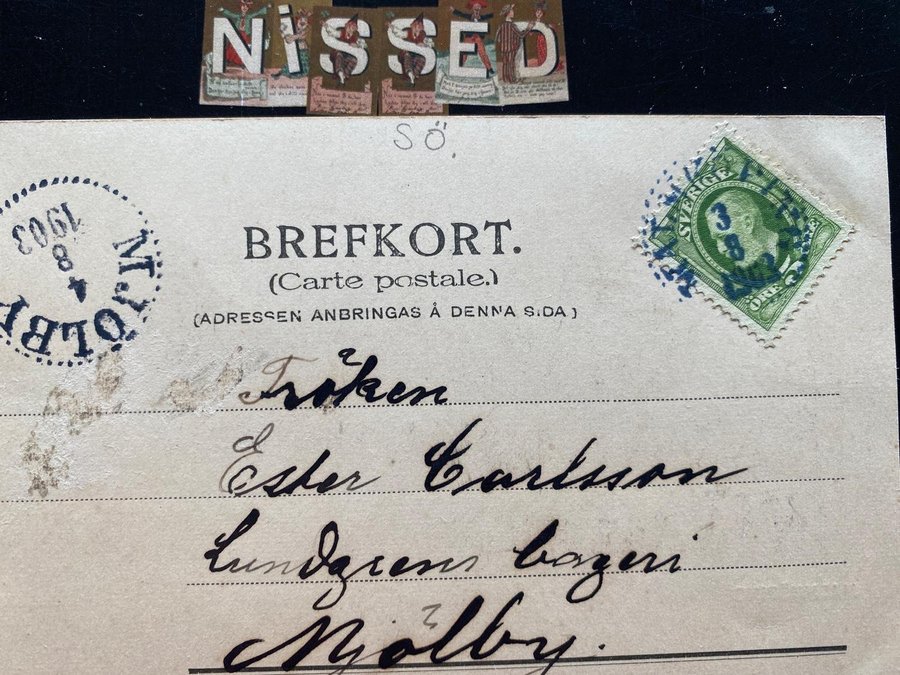 NiSSED
SÖ.
BREFKORT.
(Carte postale.)
(ADRESSEN ANBRINGAS Å DENNA SIDA)
MJÖLBY
4 8 1903
SVERIGE
3 8 1903
ÖRE
Fröken
Ester Carlsson
Lundgrens bageri
Mjölby.